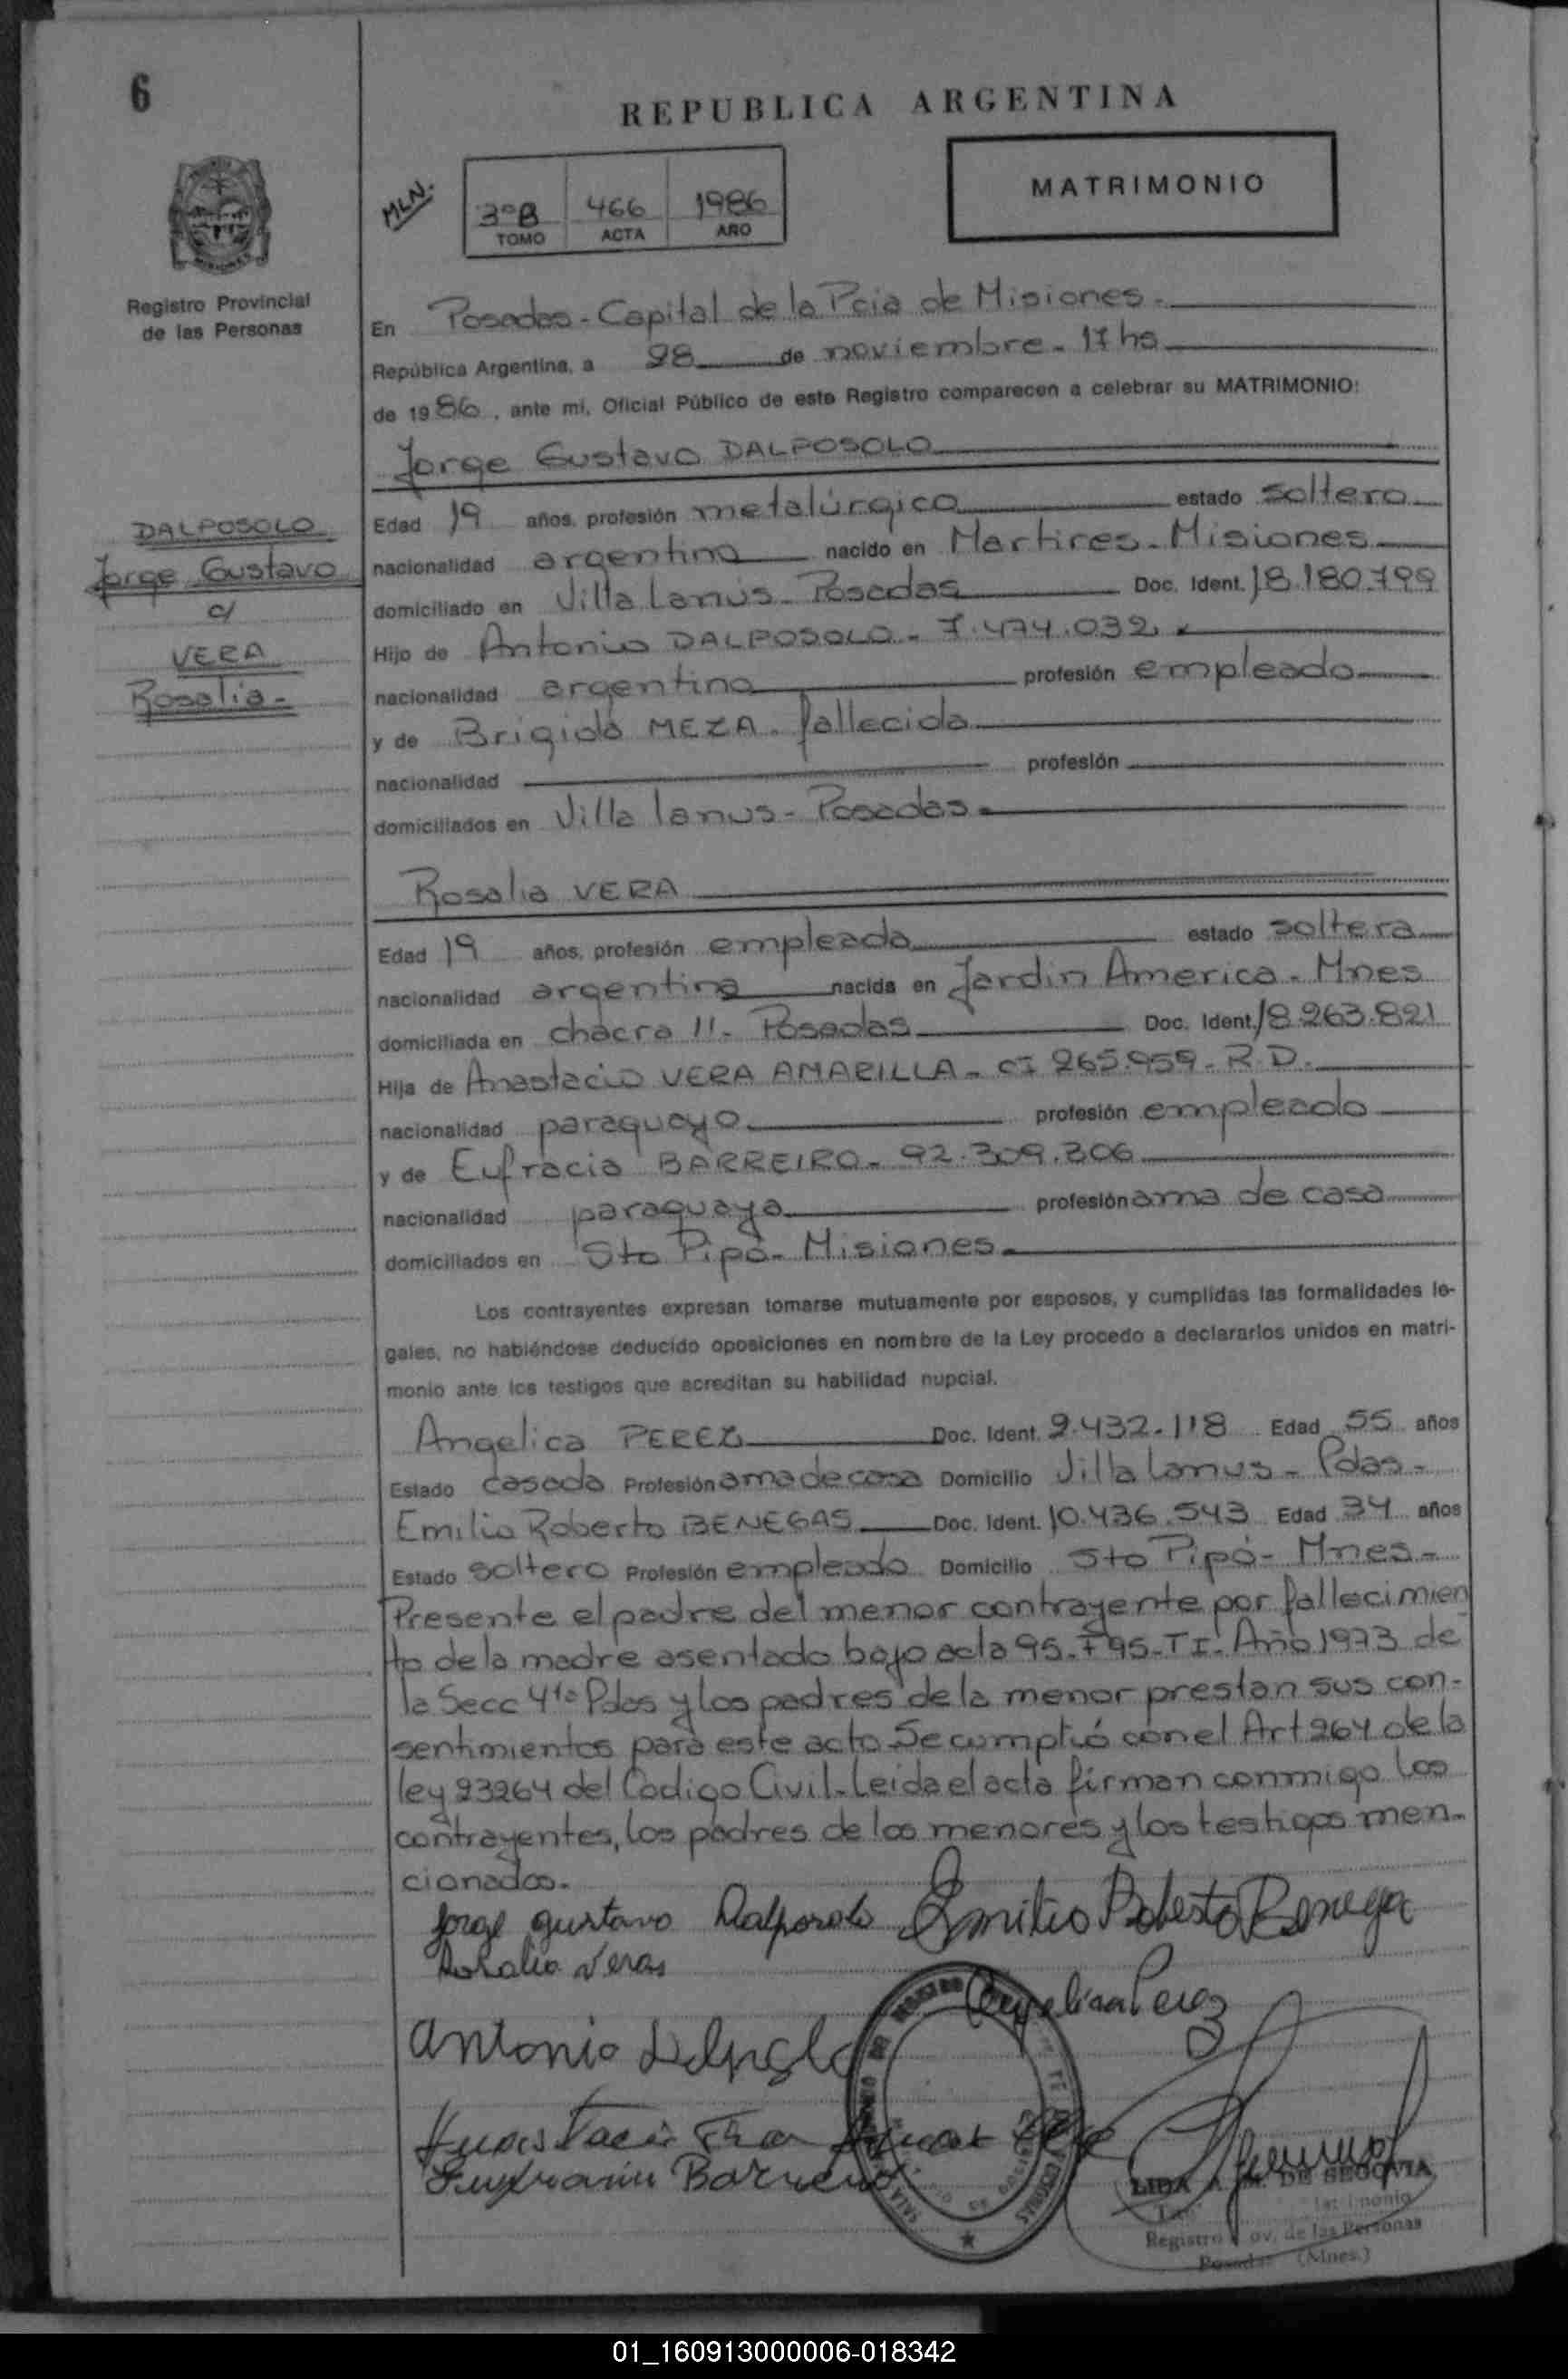 6
REPUBLICA ARGENTINA
MLN.
3ºB 466 1986
TOMO ACTA AÑO
MATRIMONIO
Registro Provincial
de las Personas
En Posadas - Capital de la Pcia de Misiones.
República Argentina, a 28 de noviembre - 17 hs
de 1986, ante mi, Oficial Público de este Registro comparecen a celebrar su MATRIMONIO:
Jorge Gustavo DALPOSOLO
DALPOSOLO
Jorge Gustavo
c/
VERA
Rosalia -
Edad 19 años, profesión metalúrgico estado soltero
nacionalidad argentino nacido en Martires - Misiones
domiciliado en Villa Lanús - Posadas Doc. Ident. 18.180.799
Hijo de Antonio DALPOSOLO - 7.474.032
nacionalidad argentino profesión empleado
y de Brigida MEZA - fallecida
nacionalidad profesión
domiciliados en Villa lanus - Posadas -
Rosalia VERA
Edad 19 años, profesión empleada estado soltera
nacionalidad argentina nacida en Jardin America - Mnes
domiciliada en chacra 11 - Posadas Doc. Ident. 18.263.821
Hija de Anastacio VERA AMARILLA - CI 265.959 - R.D.
nacionalidad paraguayo profesión empleado
y de Eufracia BARREIRO - 92.309.306
nacionalidad paraguaya profesión ama de casa
domiciliados en Sto Pipó - Misiones
Los contrayentes expresan tomarse mutuamente por esposos, y cumplidas las formalidades le-
gales, no habiéndose deducido oposiciones en nombre de la Ley procedo a declararlos unidos en matri-
monio ante los testigos que acreditan su habilidad nupcial.
Angelica PEREZ Doc. Ident. 2.432.118 Edad 55 años
Estado casada Profesión ama de casa Domicilio Villa lanus - Pdas -
Emilio Roberto BENEGAS Doc. Ident. 10.436.543 Edad 34 años
Estado soltero Profesión empleado Domicilio Sto Pipó - Mnes -
Presente el padre del menor contrayente por fallecimien
to de la madre asentado bajo acta 95 - F 95 - T I - Año 1973 de
la Secc 4ta Pdas y los padres de la menor prestan sus con-
sentimientos para este acto Se cumplió con el Art 264 de la
ley 23264 del Codigo Civil - Leida el acta firman conmigo los
contrayentes, los padres de los menores y los testigos men-
cionados.
Jorge gustavo Dalposolo Emilio Roberto Benega
Rosalia Veras
Angelica Perez
Antonio
Barreiro
LIDA DE SEGOVIA
Registro Prov. de las Personas
Posadas (Mnes.)
01_160913000006-018342